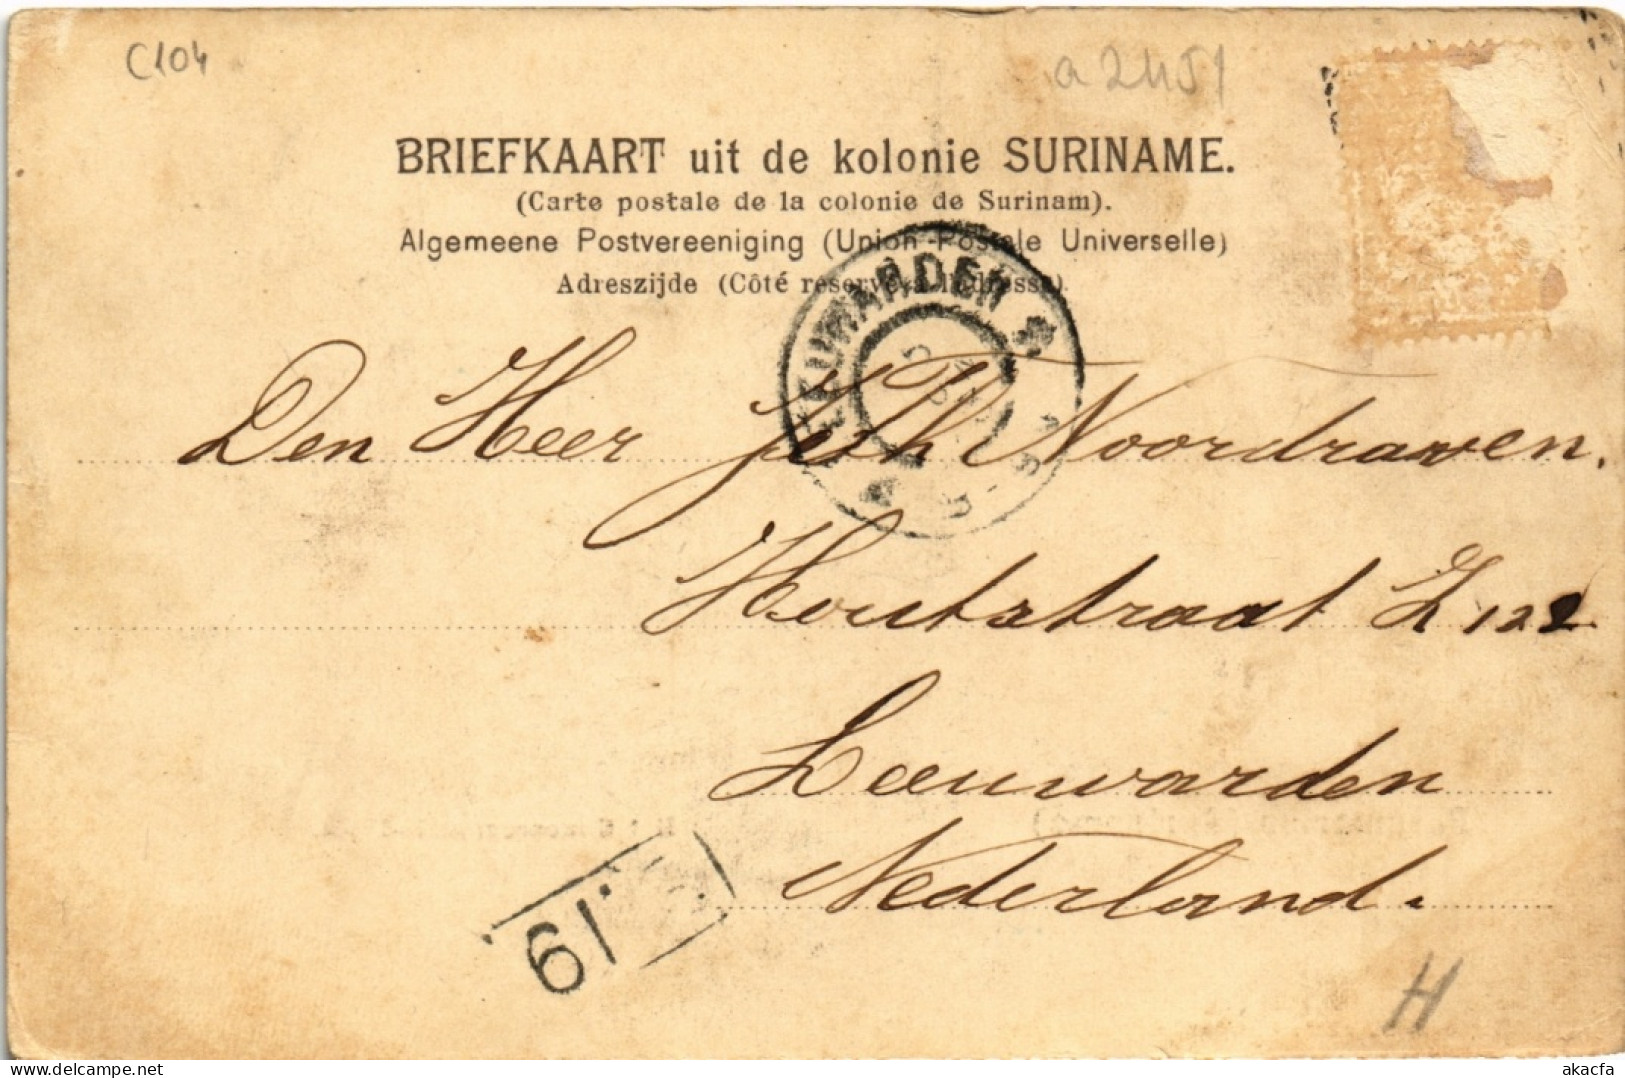 C104
a 2451
BRIEFKAART uit de kolonie SURINAME.
(Carte postale de la colonie de Surinam).
Algemeene Postvereeniging (Union Postale Universelle)
Adreszijde (Côté réservé à l'adresse)
LEEUWARDEN
Den Heer Noordraven.
Houtstraat L 122
Leeuwarden
Nederland.
19
H
delcampe.net
akacfa